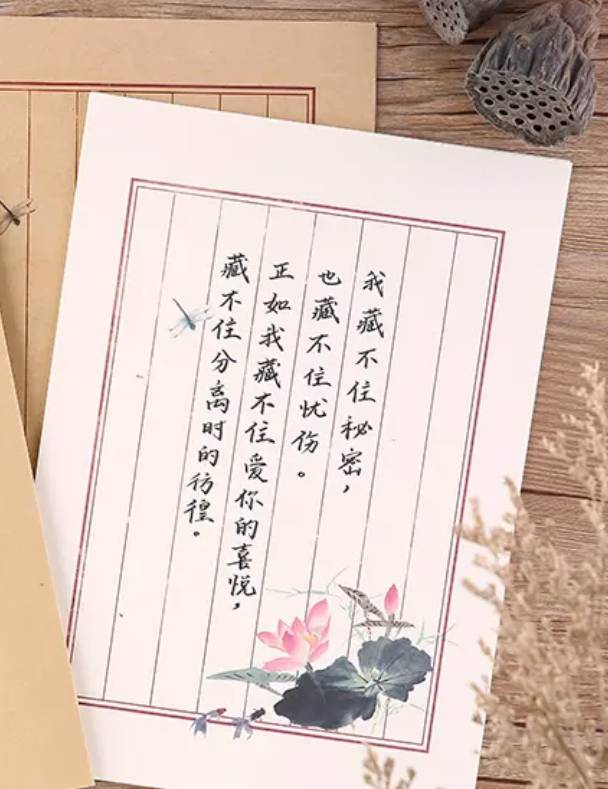 我藏不住秘密，
也藏不住忧伤。
正如我藏不住爱你的喜悦，
藏不住分离时的彷徨。